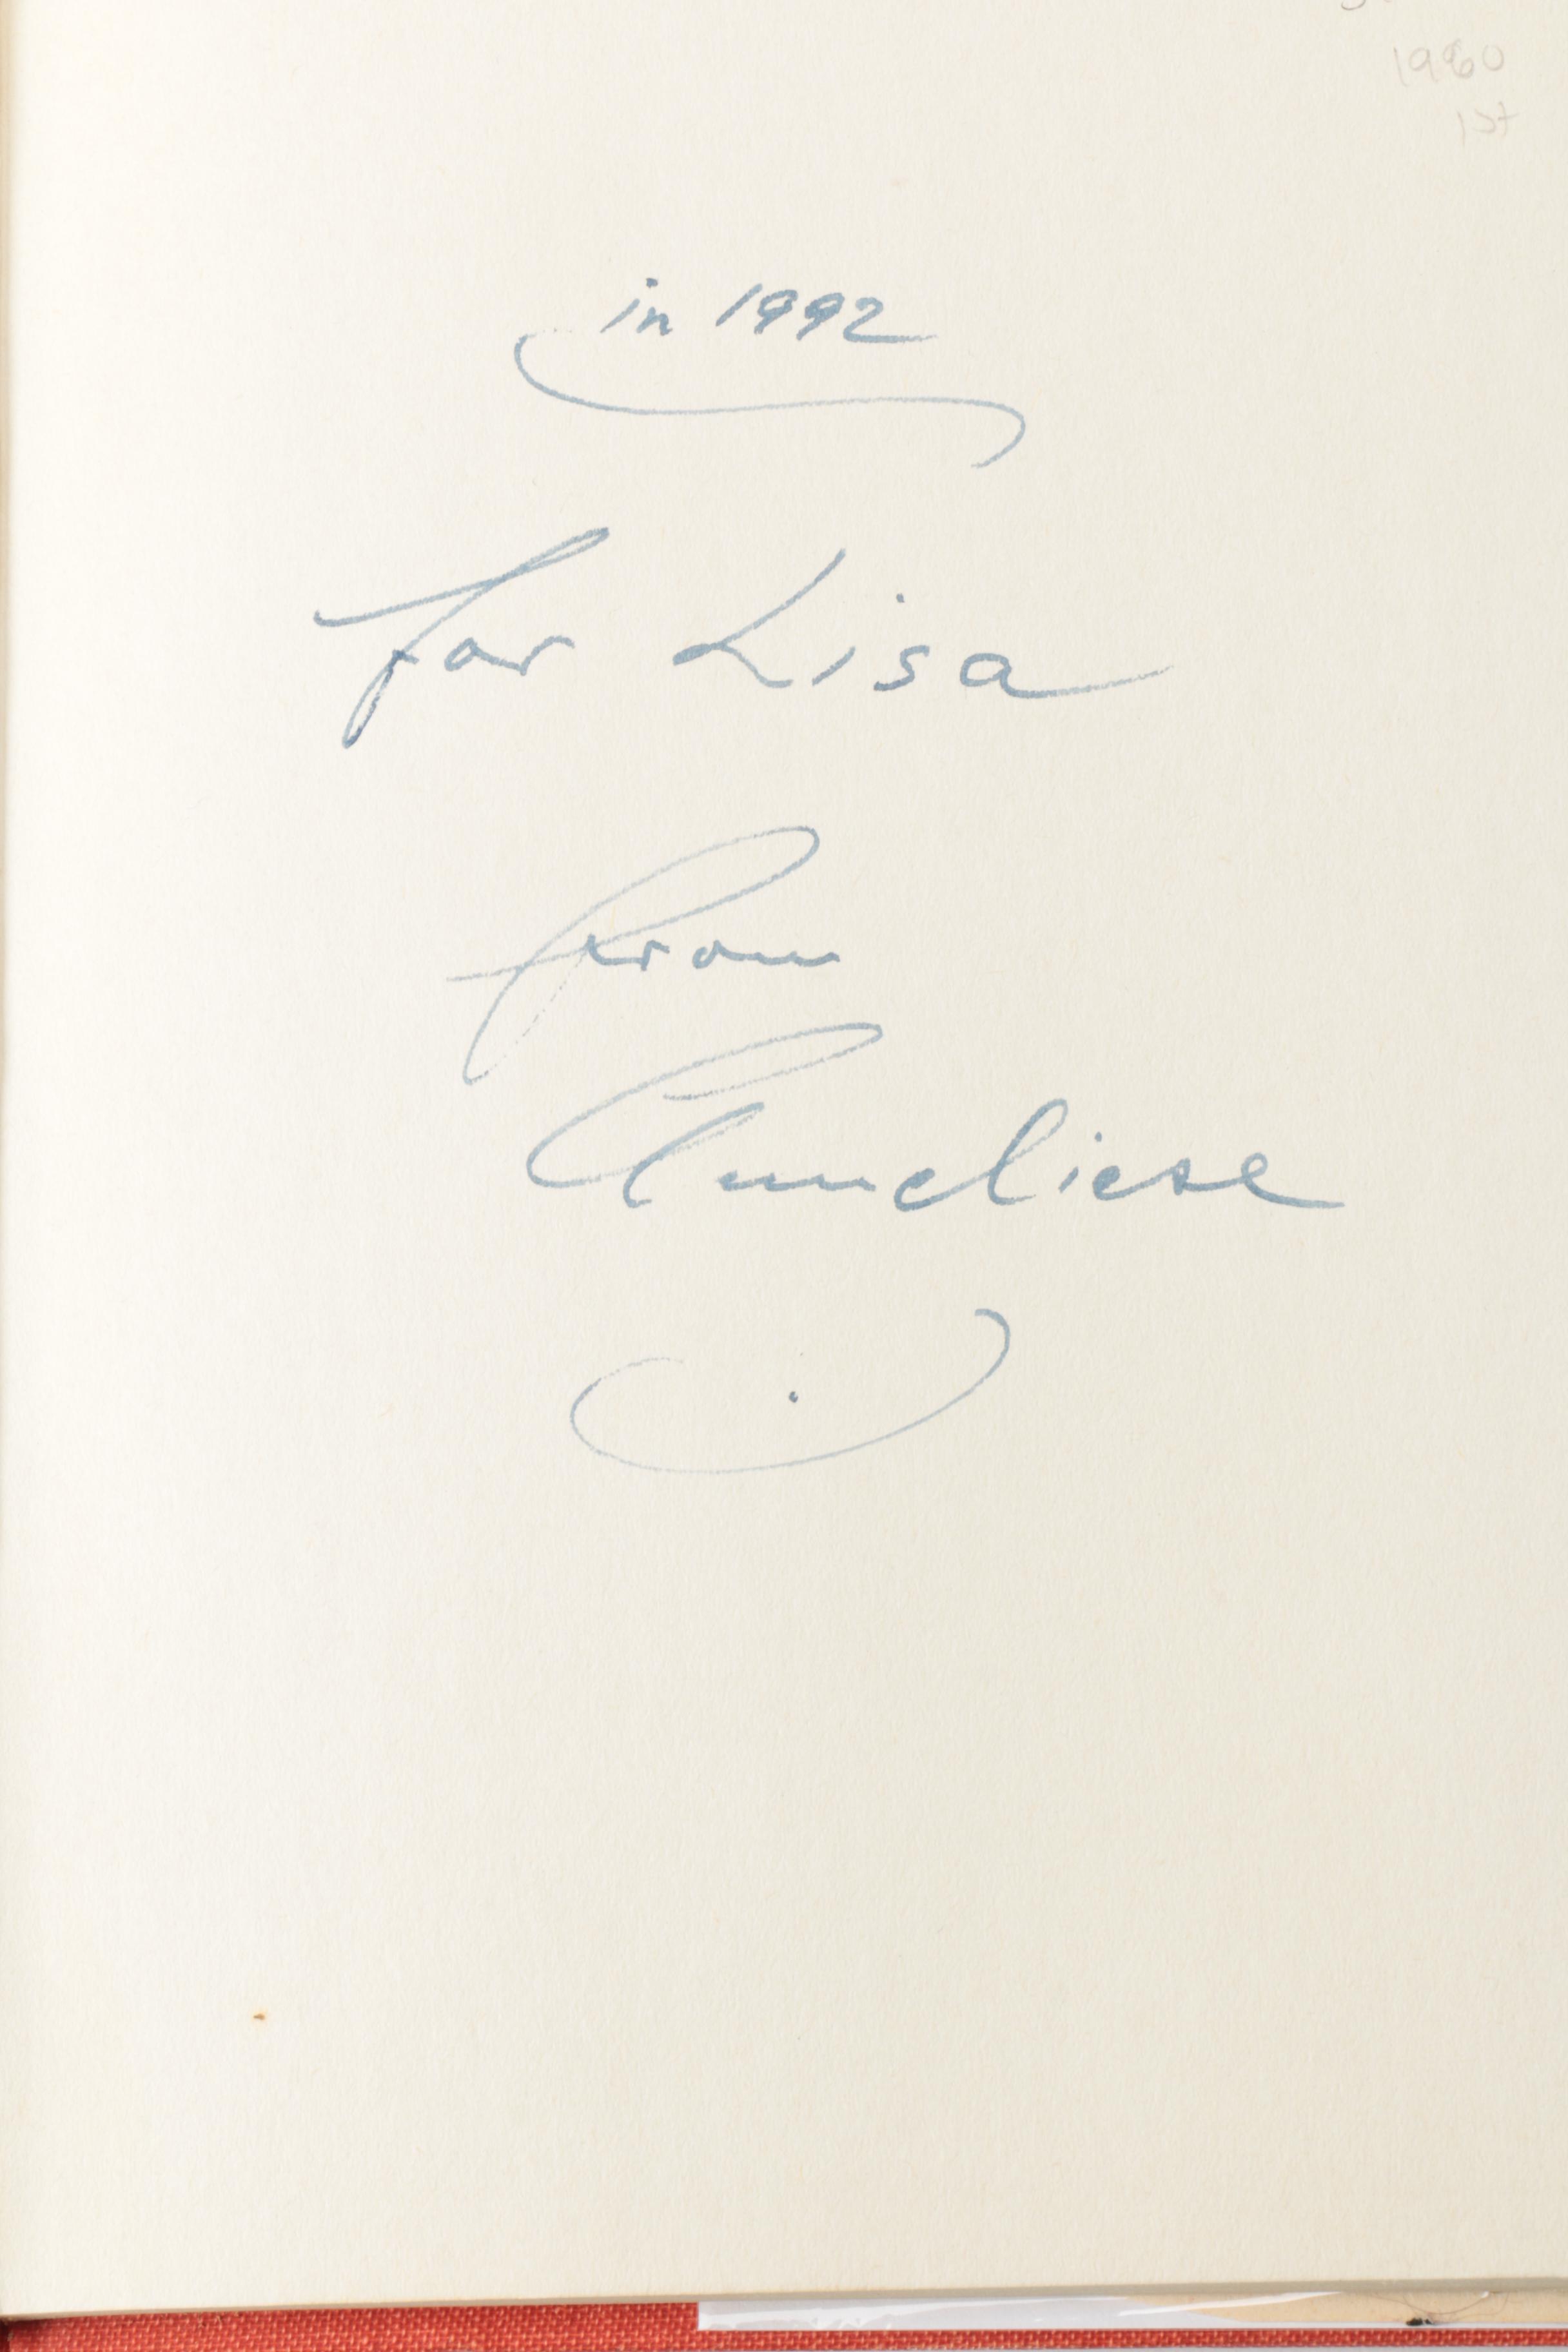 1960
1st
in 1992
for Lisa
from
Anneliese